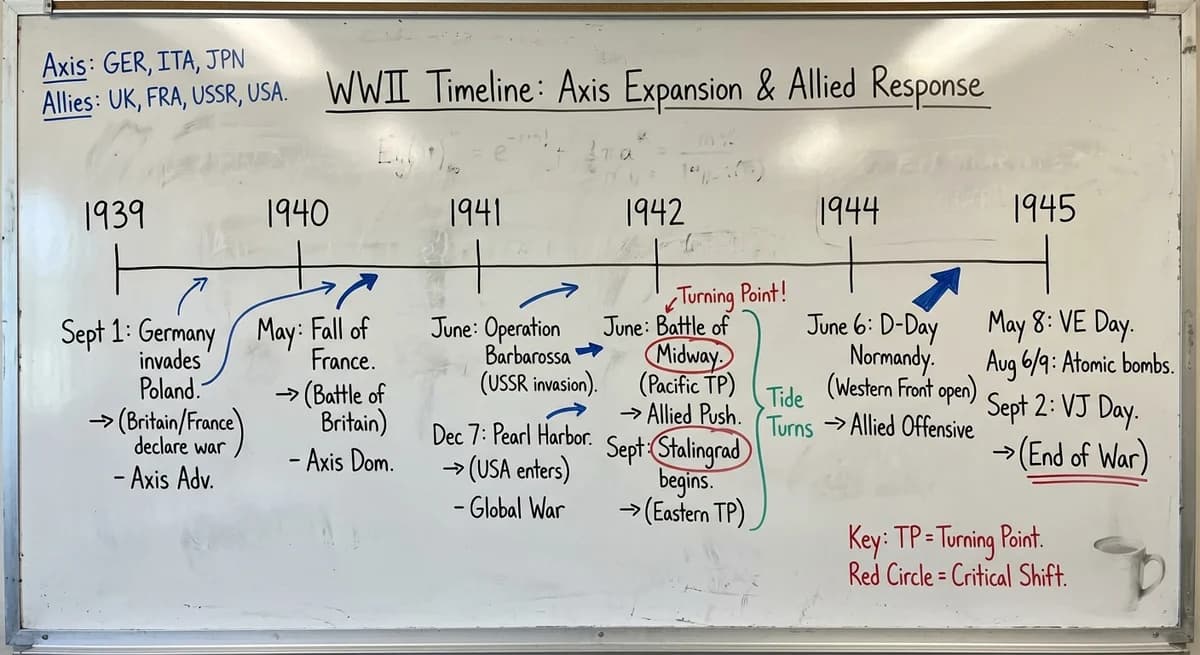 Axis: GER, ITA, JPN
Allies: UK, FRA, USSR, USA.
WWII Timeline: Axis Expansion & Allied Response
1939
1940
1941
1942
1944
1945
Sept 1: Germany
invades
Poland.
→ (Britain/France
declare war)
- Axis Adv.
May: Fall of
France.
→ (Battle of
Britain)
- Axis Dom.
June: Operation
Barbarossa
(USSR invasion).
Dec 7: Pearl Harbor.
→ (USA enters)
- Global War
Turning Point!
June: Battle of
Midway.
(Pacific TP)
→ Allied Push.
Sept: Stalingrad
begins.
→ (Eastern TP)
Tide
Turns
June 6: D-Day
Normandy.
(Western Front open)
→ Allied Offensive
May 8: VE Day.
Aug 6/9: Atomic bombs.
Sept 2: VJ Day.
→ (End of War)
Key: TP = Turning Point.
Red Circle = Critical Shift.